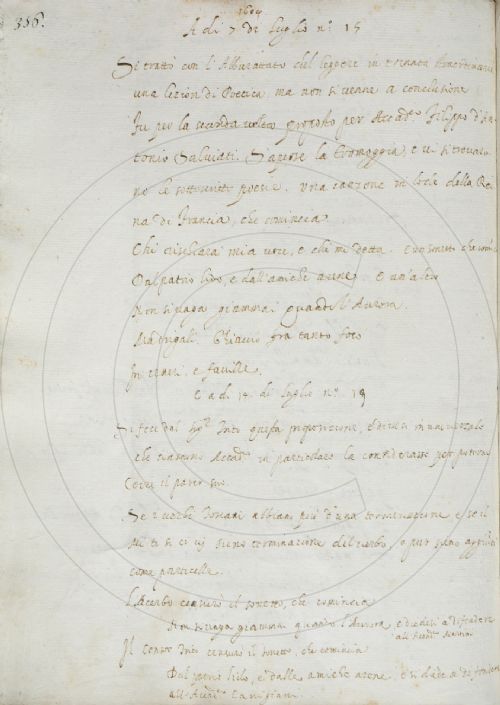 356.
1604
A di 7 di Luglio nº. 15
Si trattò con l'Abburattato del leggere in tornata
una lezion di Poetica, ma non si venne a conclusione
Fu per la seconda volta proposto per Accad.co Filippo d'An-
tonio Salviati. S'aperse la Tramoggia, e vi si trovaro-
no le sottoscritte poesie. Una canzone in lode della Rei-
na di Francia, che comincia
Chi mia voce, e chi mi detta. E due sonetti che
Dal patrio lido, e dall'amiche arene. E un altro
Non si vaga giammai quando l'Aurora
Madrigali. Ghiaccio fra tanto foco
In ceneri, e faville.
E a di 14 di Luglio nº. 13
Si fece dal questa proposizione, e in universale
che ciascuno Accad.co in particolare la considerasse per potervi
dire il parer suo.
Se i verbi Toscani abbian più d'una terminazione, e se il
mi ti si ci vi sieno terminazione del verbo, o pur sieno
come particelle.
L'Acerbo censurò il sonetto, che comincia
Non si vaga giammai quando l'Aurora, e diedesi a difendere
all'Accad.co
Il censurò il sonetto, che comincia
Dal patrio lido, e dalle amiche arene, e si diede a difendere
all'Accad.co Canigiani.